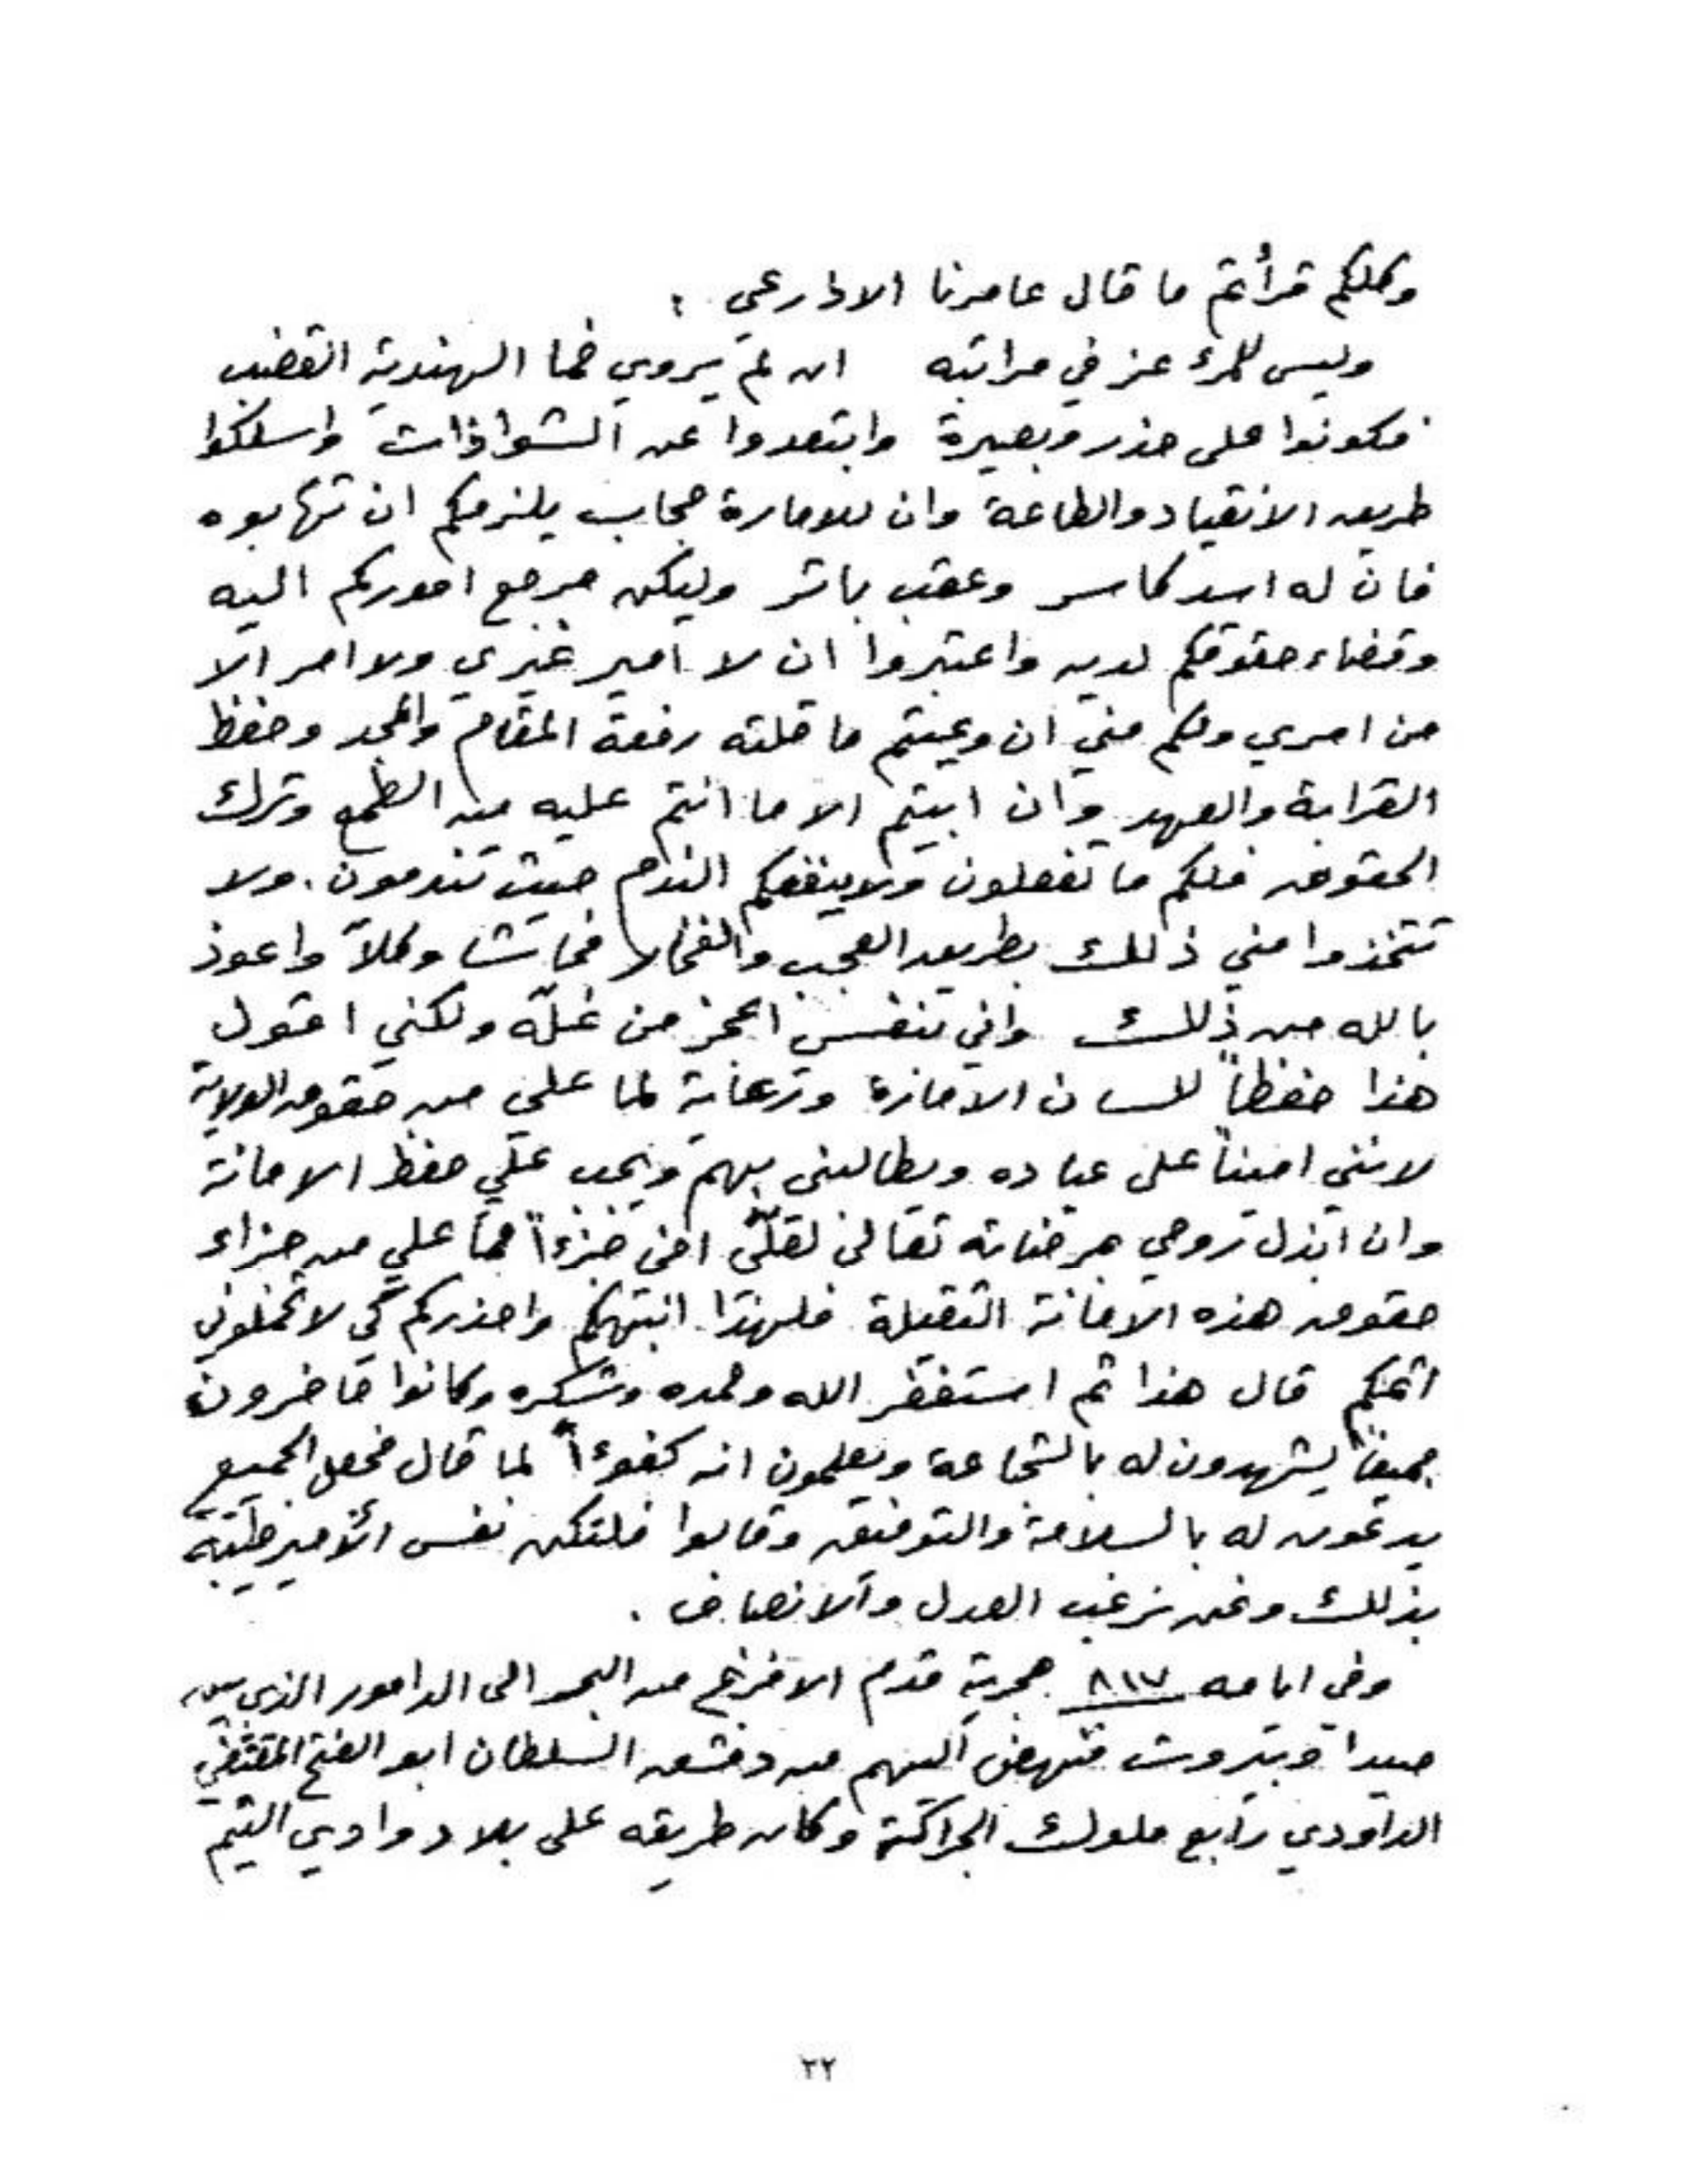 وكلكم قرأتم ما قال عامرنا الادارعي :
وليس للمرء عز في مراتبه ان لم يروي ظما الهندية القضب
فكونوا على حذر وبصيرة وابتعدوا عن الشواذات واسلكوا
طريق الانقياد والطاعة وان للامارة حجاب يلزمكم ان تهابوه
فان له اسد كاسر وعقب باتر وليكن مرجع اموركم اليه
وقضاء حقوقكم لديه واعتبروا ان لا امير غيري ولا امر الا
من امري ولكم مني ان وعيتم ما قلته رفعة المقام والمجد وحفظ
القرابة والعهد وان ابيتم الا ما انتم عليه من الطمع وترك
الحقوق فلكم ما تفعلون ولا ينفعكم الندم حيث تندمون. ولا
تتخذوا مني ذلك بطريق العجب والفخار فحاشا وكلا واعوذ
بالله من ذلك واني بنفسي اعجز من نملة ولكني اقول
هذا حفظاً للسان الامارة ورعاية لما علي من حقوق الولاية
لانني اميناً على عباده ويطالبني بهم ويجب علي حفظ الامانة
وان ابذل روحي مرضاته تعالى لعلّي افي جزءاً مما علي من جزاء
حقوق هذه الامانة الثقيلة فلهذا انبهكم واحذركم كي لا تحملوني
اثمكم قال هذا ثم استغفر الله وحمده وشكره وكانوا حاضرون
جميعاً يشهدون له بالشجاعة ويعلمون انه كفوءاً لما قال فجعل الجميع
يدعون له بالسلامة والتوفيق وقالوا فلتكن نفس الأمير طيبة
بذلك ونحن نرغب العدل والانصاف .
وفي ايامه ٨١٧ هجرية قدم الافرنج من البحر الى الدامور الذي بين
صيدا وبيروت فنهض اليهم من دمشق السلطان ابو الفتح المقتضي
الداودي رابع ملوك الجراكسة وكان طريقه على بلاد وادي التيم
٢٢